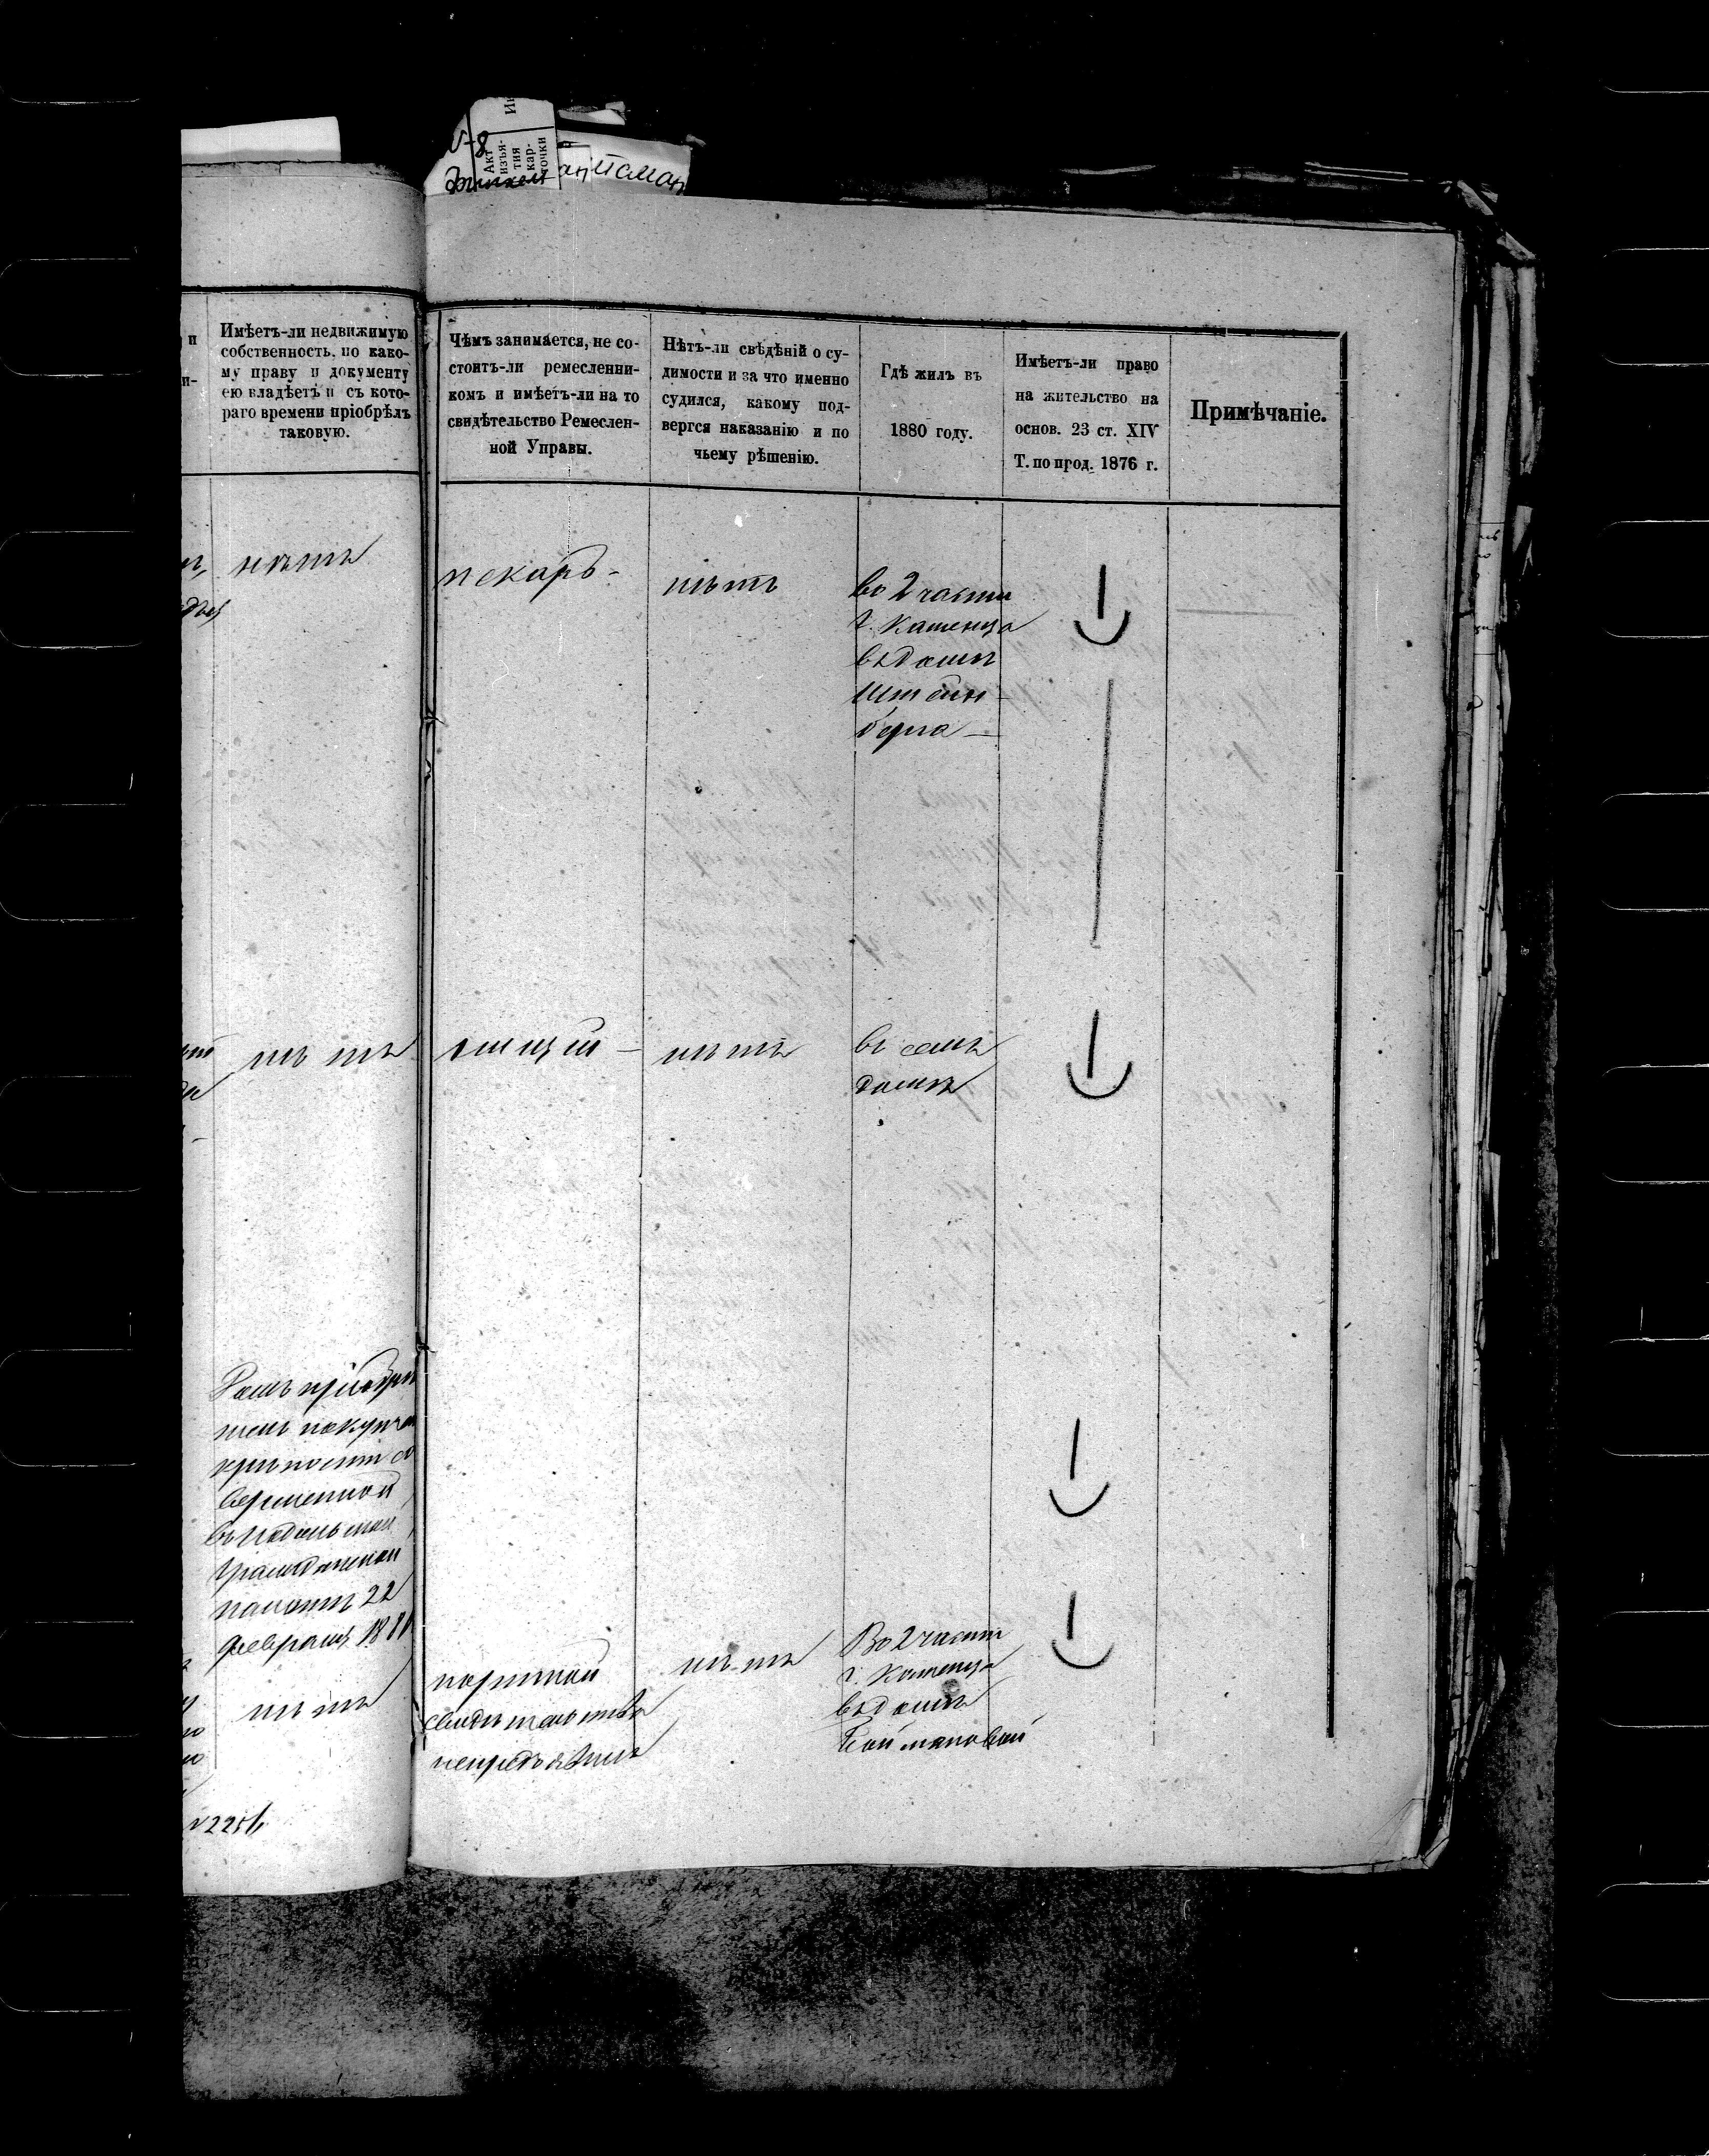 №8
Акт
изъя-
тия
кар-
точки
и
и-
Имѣетъ-ли недвижимую
собственность, по како-
му праву и документу
ею владѣетъ и съ кото-
раго времени пріобрѣлъ
таковую.
Чѣмъ занимается, не со-
стоитъ-ли ремесленни-
комъ и имѣетъ-ли на то
свидѣтельство Ремеслен-
ной Управы.
Нѣтъ-ли свѣдѣній о су-
димости и за что именно
судился, какому под-
вергся наказанію и по
чьему рѣшенію.
Гдѣ жилъ въ
1880 году.
Имѣетъ-ли право
на жительство на
основ. 23 ст. XIV
Т. по прод. 1876 г.
Примѣчаніе.
нѣтъ
пекаръ-
нѣтъ
во 2 части
г. Каменца
въ домѣ
Штейн-
берга
нѣтъ
нищій
нѣтъ
въ семъ
домѣ
Домъ пріобрѣ
тенъ покупчей
крѣпости со
вершенной
въ Подольской
Гражданской
палатѣ 22
февраля 1881
нѣтъ
портной
свидѣтельства
непредъявилъ
нѣтъ
Во 2 части
г. Каменца
въ домѣ
Коймановой
№ 2251